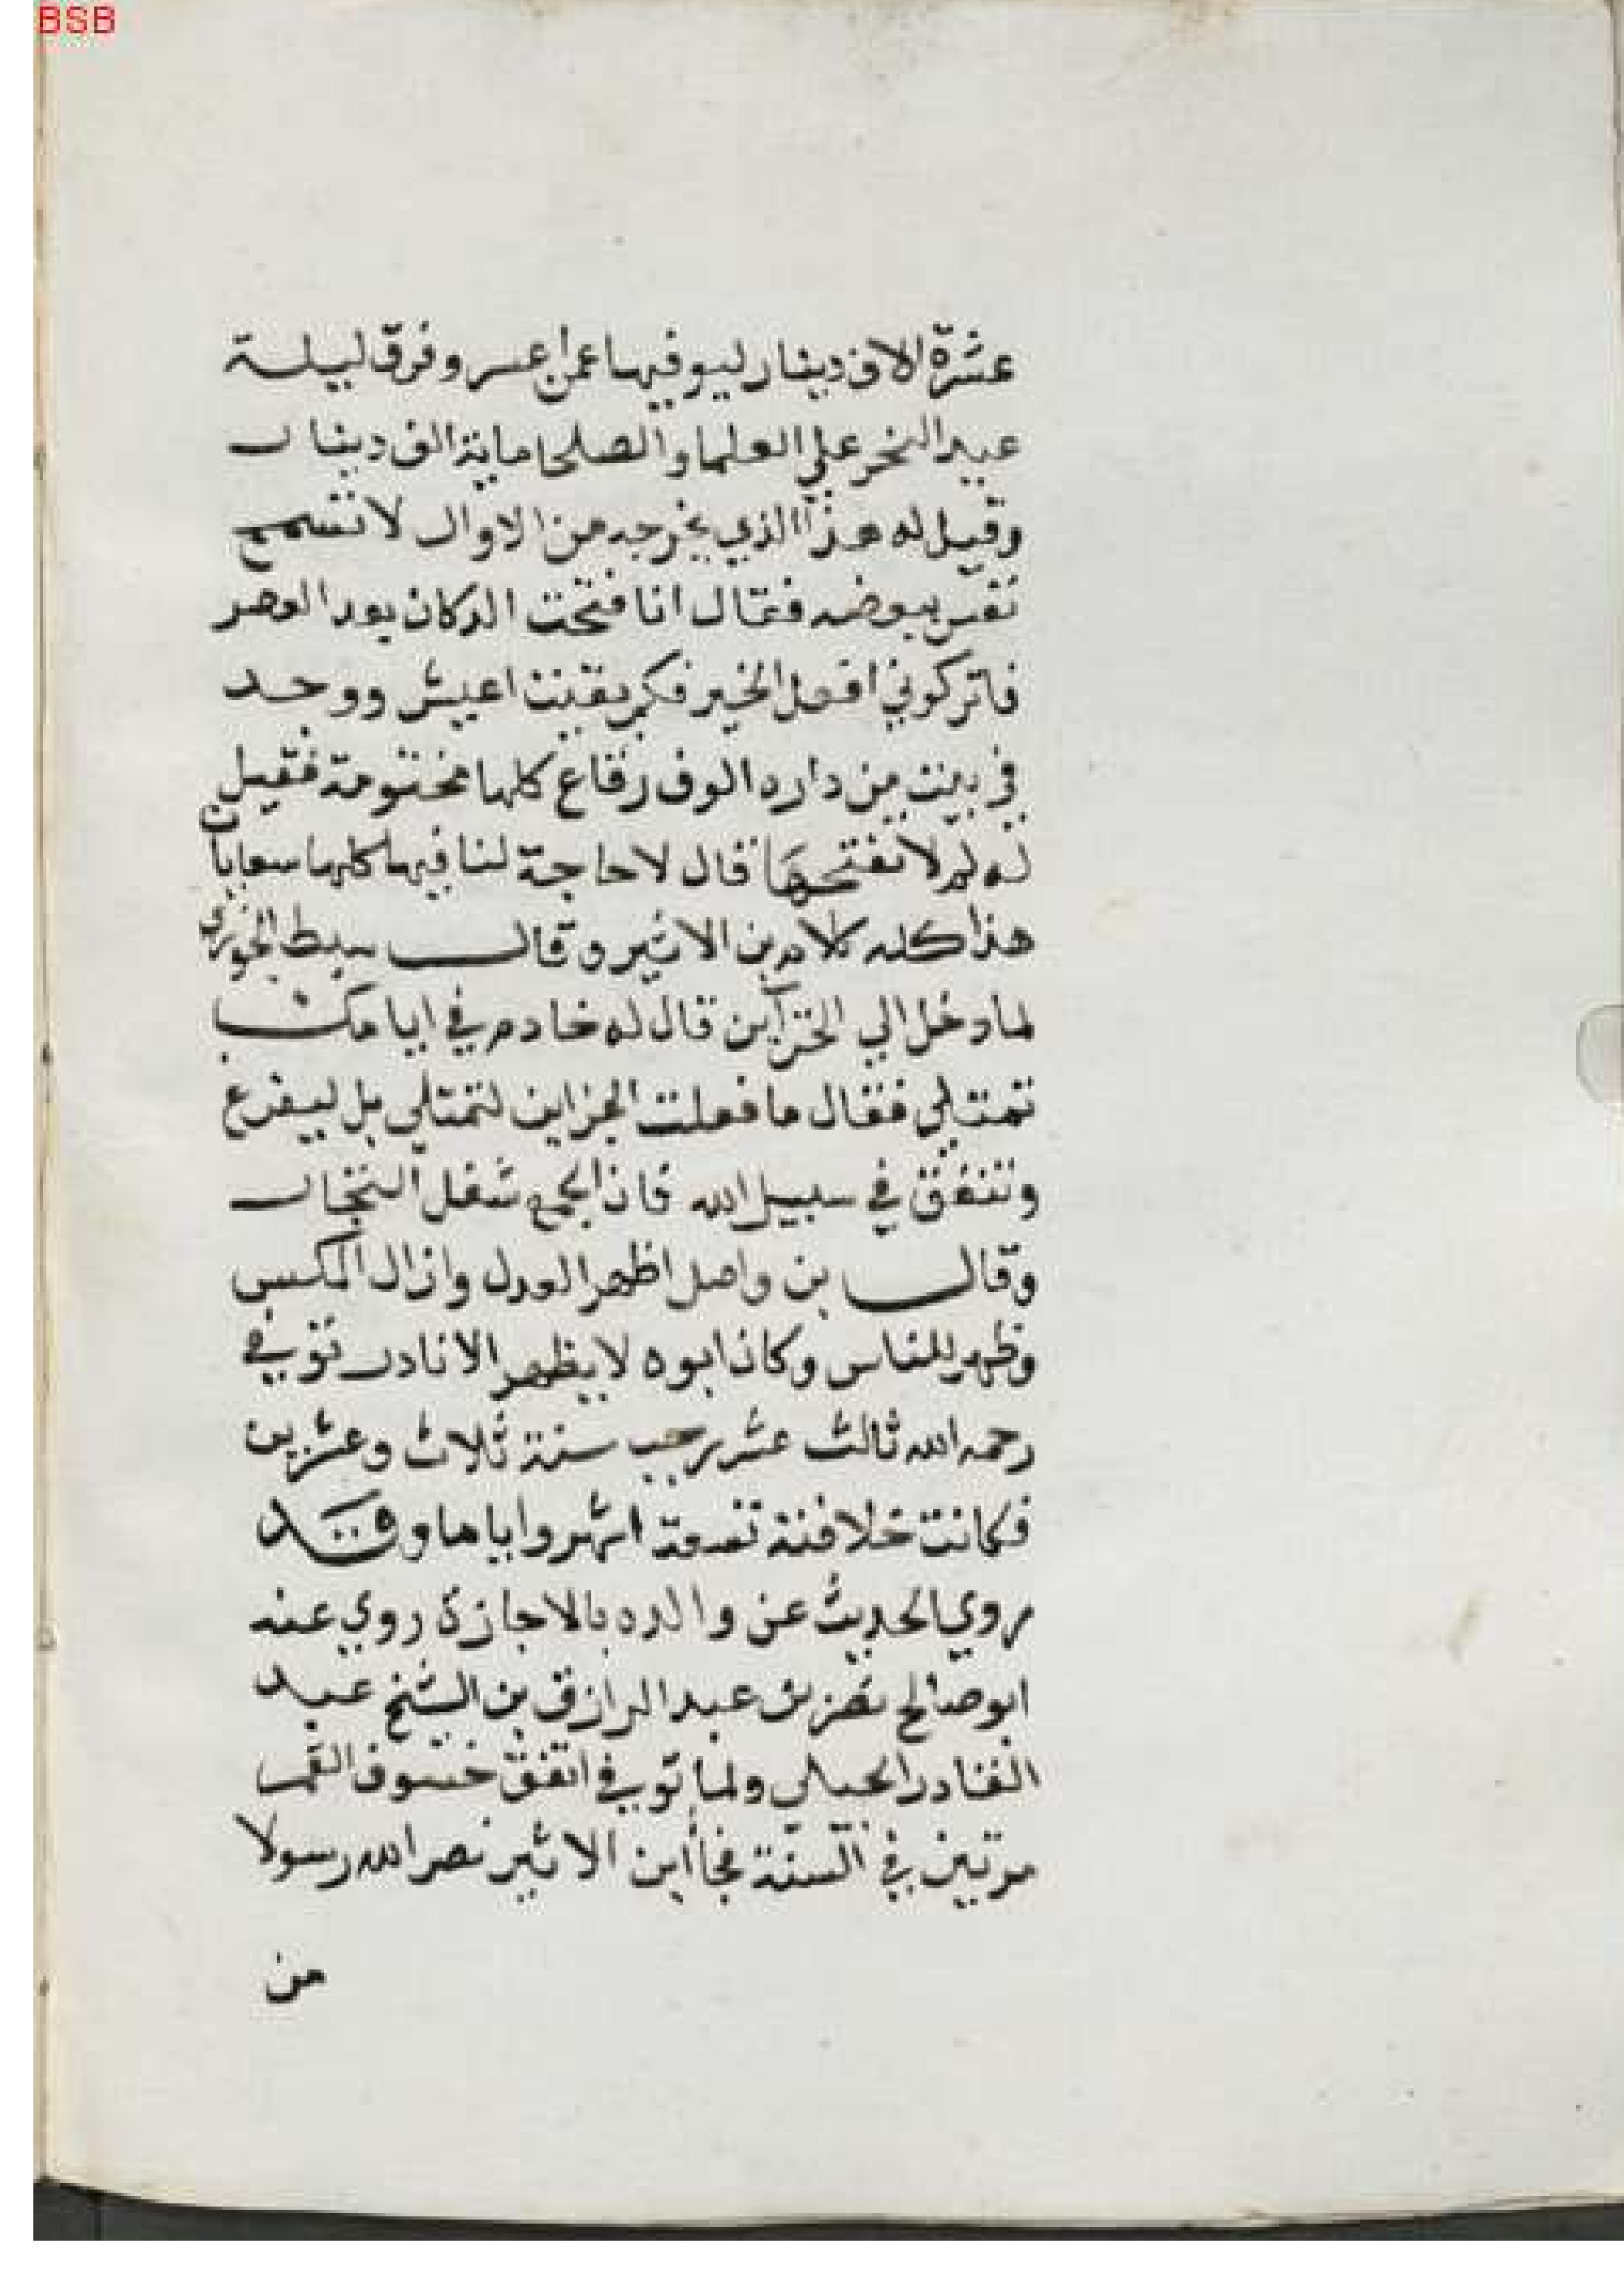 BSB
عشرة الاف دينار ليوفيها عمن اعسر وفرق ليلة
عيد النحر علي العلما والصلحا ماية الف دينار
وقيل له هذا الذي يخرجه من الاوال لا تسمح
نفس ببعضه فقال انا فتحت الدكان بعد العصر
فاتركوني افعل الخير فكم بقيت اعيش ووجد
في بيت من داره الوف رقاع كلها مختومة فقيل
له لم لا تفتحها قال لا حاجة لنا فيها كلها سعايات
هذا كله كلام بن الاثير وقال سبط الجوزي
لما دخل الي الخزاين قال له خادم في ايامك
تمتلي فقال ما فعلت الخزاين لتمتلي بل ليفرغ
وتنفق في سبيل الله فان الجمع شغل التجار
وقال بن واصل اظهر العدل وازال المكس
وظهر للناس وكان ابوه لا يظهر الا نادر توفي
رحمه الله ثالث عشر رجب سنة ثلاث وعشرين
فكانت خلافته تسعة اشهر واياما وقد
روي الحديث عن والده بالاجازة روي عنه
ابو صالح نصر بن عبد الرازق بن الشيخ عبد
القادر الجيلي ولما توفي اتفق خسوف القمر
مرتين في السنة فجا ابن الاثير نصر الله رسولا
من